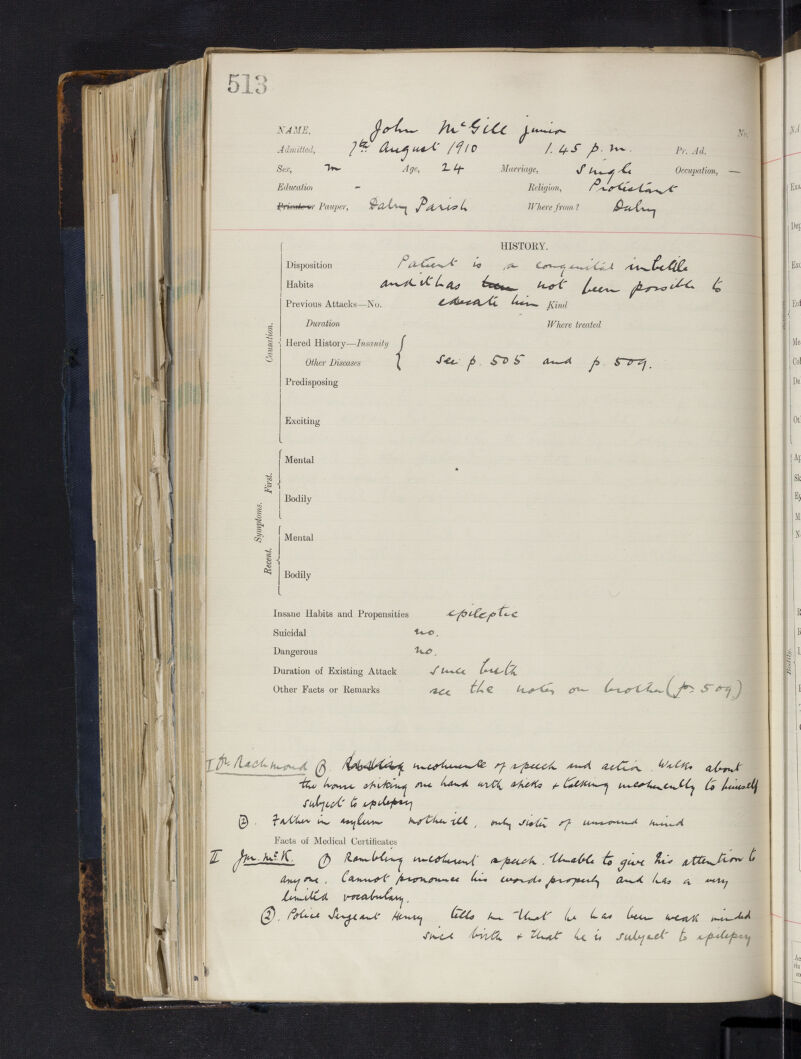 513
NAME, John McGill junior No.
Admitted, 7th August 1910 1.45 p.m. Pr. Ad.
Sex, m Age, 24 Marriage, Single Occupation, —
Education - Religion, Protestant
Private or Pauper, Dalry Parish Where from? Dalry
HISTORY.
Disposition Patient is a congenital imbecile
Habits and it has been not been possible to
Previous Attacks—No. educate him Kind
Duration Where treated
Causation.
Hered History—Insanity
Other Diseases See p. 505 and p. 509.
Predisposing
Exciting
Symptoms.
First.
Mental
Bodily
Recent.
Mental
Bodily
Insane Habits and Propensities epileptic
Suicidal no.
Dangerous no.
Duration of Existing Attack Since birth
Other Facts or Remarks see the notes on brother (p. 509)
I Dr Rachmond (1). Rambling incoherence of speech and action. Walks about
the house striking one hand with sticks & talking incoherently to himself
subject to epilepsy
(2). Father in asylum mother ill, only sister of unsound mind
Facts of Medical Certificates
II Jn. McK. (1) Rambling incoherent speech. Unable to give his attention to
anyone. Cannot pronounce his words properly and has a very
limited vocabulary.
(2). Police Sergeant Henry tells me that he has been weak minded
since birth & that he is subject to epilepsy